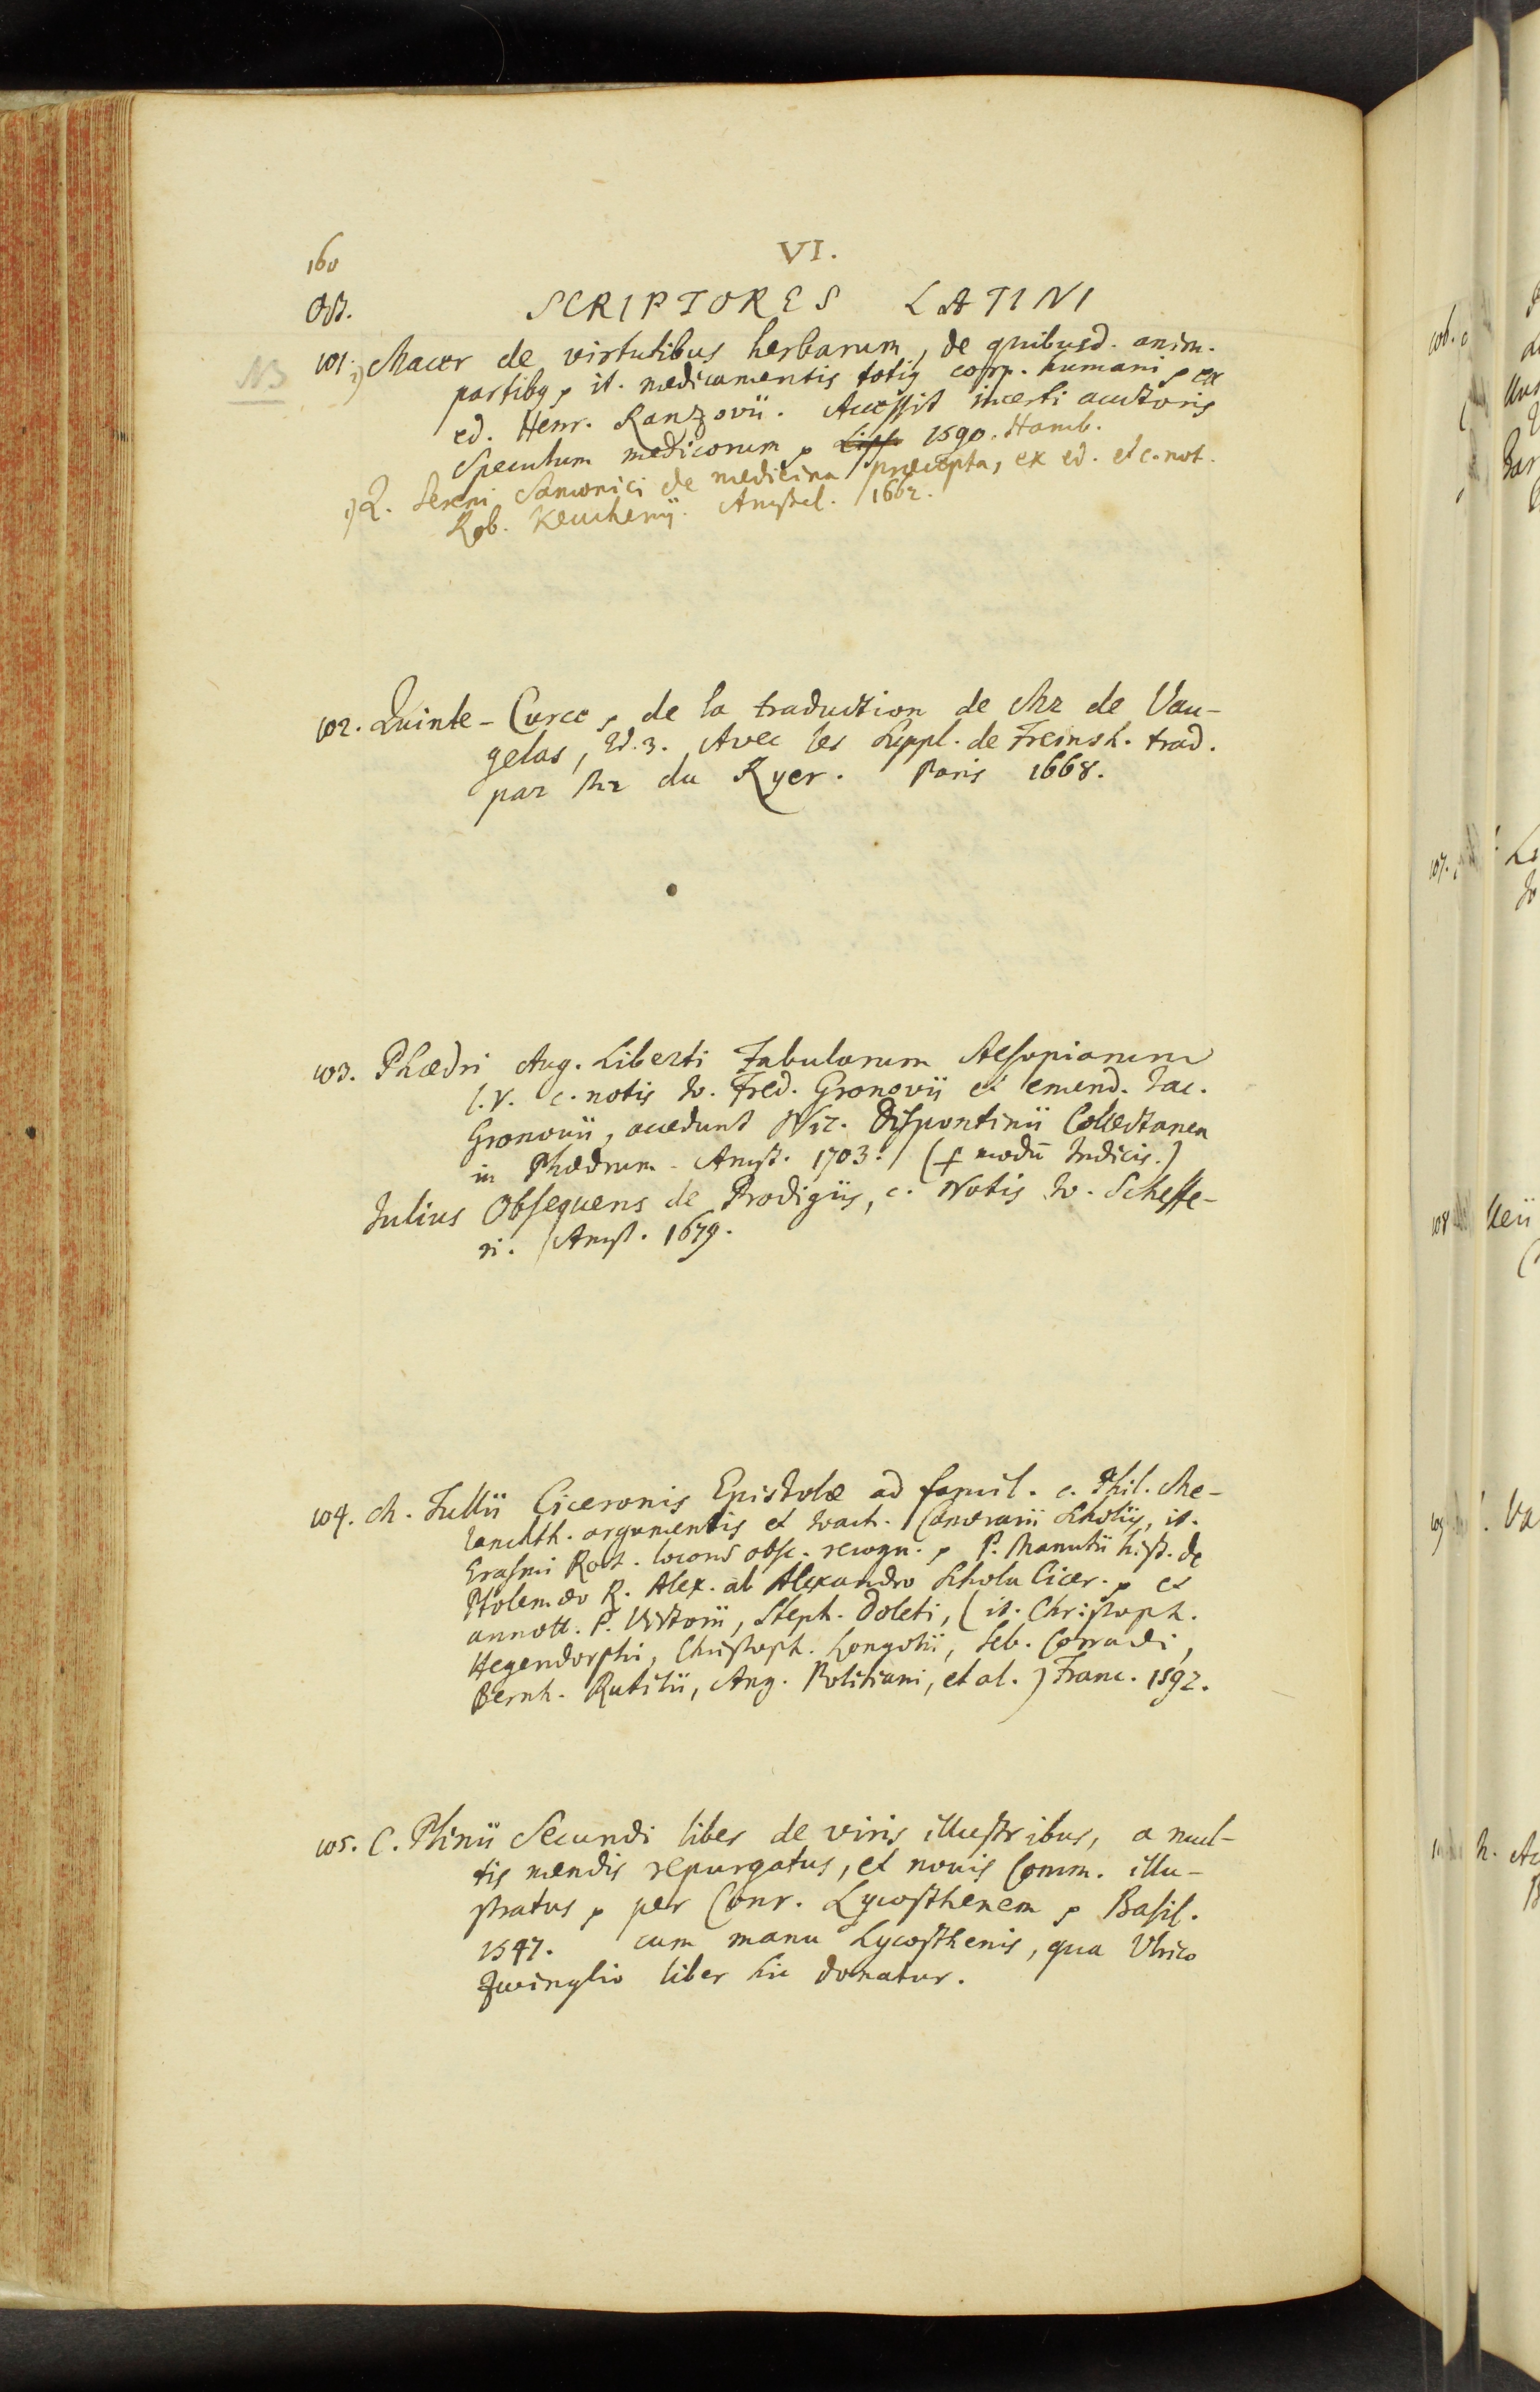 160
VI.
Oct.
SCRIPTORES LATINI
NB
101. 2) Macer de virtutibus herbarum, de quibusd. anim.
partibq, it. medicamentis totiq corp. humani, ex
ed. Henr. Ranzovii. Accessit incerti auctoris
Speculum medicorum, Lips. 1590. Hamb.
1) Q. Sereni Samonici de medicina præcepta, ex ed. et c. not.
Rob. Keuchenij. Amstel. 1662.
102. Quinte-Curce, de la traduction de Mr de Vau-
gelas, Ed. 3. Avec les Suppl. de Freinsh. trad.
par Mr du Ryer. Paris 1668.
103. Phædri Aug. Liberti Fabularum Aesopianum
l. V. c. notis Io. Fred. Gronovii et emend. Iac.
Gronovii, accedunt Nic. Dispontinii Collectanea
in Phædrum. Amst. 1703. ( modū Indicis.)
Iulius Obsequens de Prodigiis, c. Notis Io. Scheffe-
ri. Amst. 1679.
104. M. Tullii Ciceronis Epistolæ ad famil. c. Phil. Me-
lanchth. argumentis et Ioach. Camerarii Scholiis, it.
Erasmi Rot. locorũ obsc. recogn., P. Manutii hist. de
Ptolemæo R. Alex. ab Alexandro Schola Cicer., et
annott. P. Victorii, Steph. Doleti, (it. Christoph.
Hegendorphi, Christoph. Longolii, Seb. Corradi,
Bernh. Rutilii, Ang. Politiani, et al.) Franc. 1592.
105. C. Plinii Secundi liber de viris illustribus, a mul-
tis mendis repurgatus, et novis Comm. illu-
stratus, per Conr. Lycosthenem, Basil.
1547. cum manu Lycosthenis, qua Ulrico
Zwinglio liber hic donatur.
106.
107.
108
109